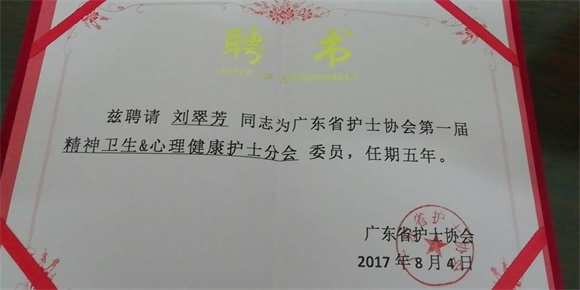 聘书
兹聘请 刘翠芳 同志为广东省护士协会第一届
精神卫生&心理健康护士分会 委员，任期五年。
广东省护士协会
2017年8月4日